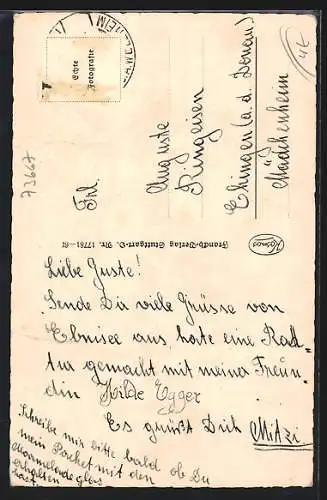 Echte
Fotografie
Frl.
Auguste
Ringeisen
Ehingen (a. d. Donau)
Mädchenheim
Frandb-Verlag Stuttgart-O. Nr. 17761
Liebe Guste!
Sende Dir viele Grüsse von
Ebnisee aus, habe eine Rad-
tur gemacht mit meiner Freun
din Hilde Egger
Es grüßt Dich Mitzi
Schreibe mir bitte bald ob Du
mein Packet mit den
Marmelade glas
erhalten
hast.
73667
4E